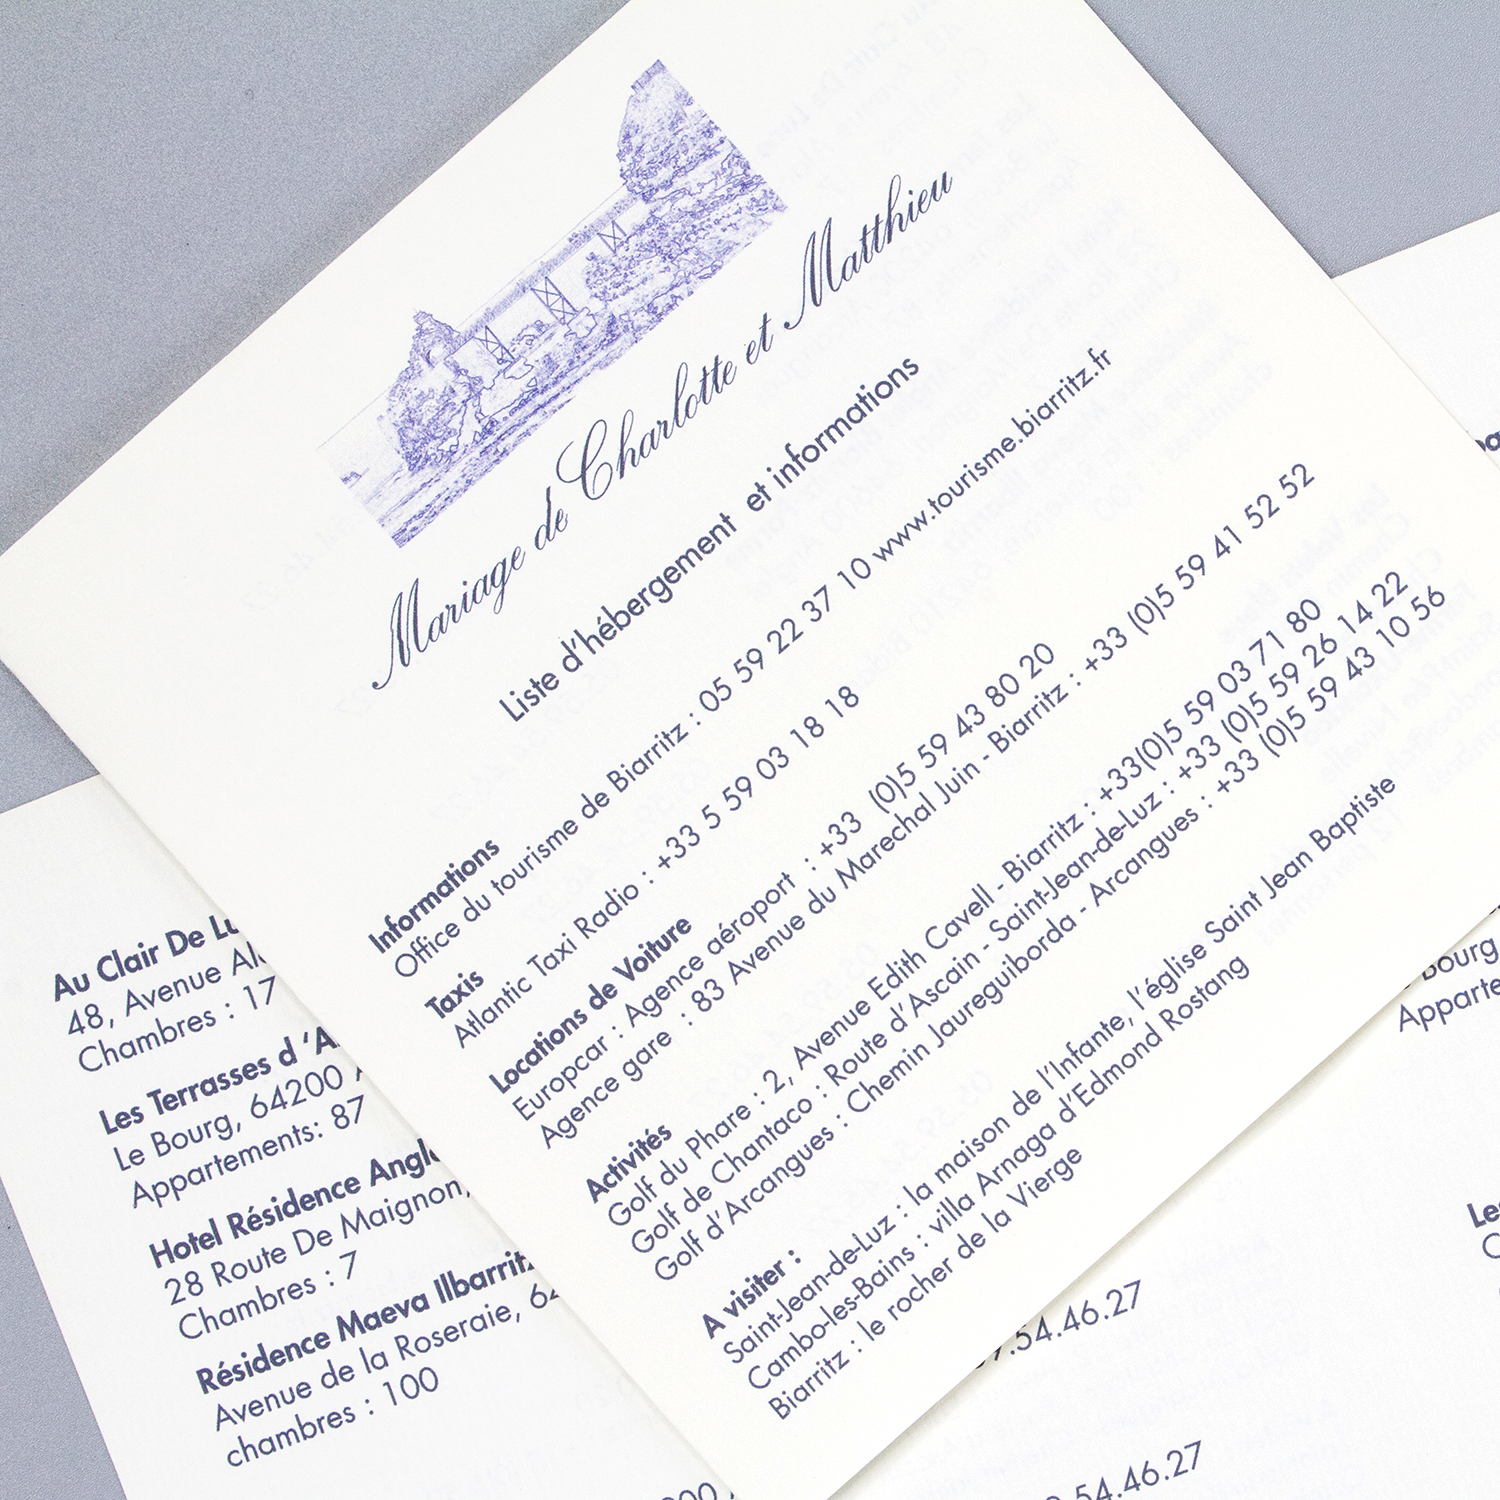 Mariage de Charlotte et Matthieu
Liste d'hébergement et informations
Informations
Office du tourisme de Biarritz : 05 59 22 37 10 www.tourisme.biarritz.fr
Taxis
Atlantic Taxi Radio : +33 5 59 03 18 18
Locations de Voiture
Europcar : Agence aéroport : +33 (0)5 59 43 80 20
Agence gare : 83 Avenue du Marechal Juin - Biarritz : +33 (0)5 59 41 52 52
Activités
Golf du Phare : 2, Avenue Edith Cavell - Biarritz : +33(0)5 59 03 71 80
Golf de Chantaco : Route d'Ascain - Saint-Jean-de-Luz : +33 (0)5 59 26 14 22
Golf d'Arcangues : Chemin Jaureguiborda - Arcangues : +33 (0)5 59 43 10 56
A visiter :
Saint-Jean-de-Luz : la maison de l'Infante, l'église Saint Jean Baptiste
Cambo-les-Bains : villa Arnaga d'Edmond Rostang
Biarritz : le rocher de la Vierge
Au Clair De
48, Avenue
Chambres : 17
Les Terrasses d 'A
Le Bourg, 64200
Appartements: 87
Hotel Résidence
28 Route De Maignon,
Chambres : 7
Résidence Maeva Ilbarritz
Avenue de la Roseraie,
chambres : 100
.54.46.27
.54.46.27
Bourg
Apparte